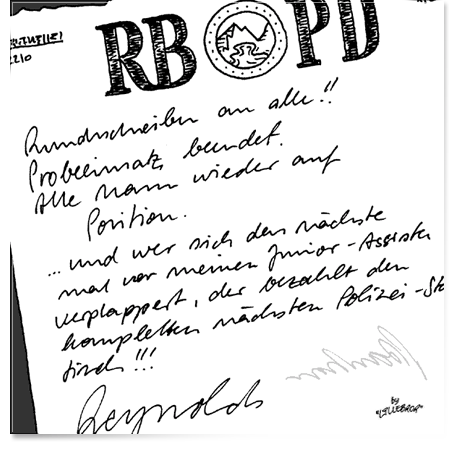 RB PD
Rundschreiben an alle!!
Probeeinsatz beendet.
Alle Mann wieder auf
Position.
...und wer sich das nächste
mal vor meinen Junior-Assisten
verplappert, der bezahlt den
kompletten nächsten Polizei-St
tisch!!!
Reynolds
by